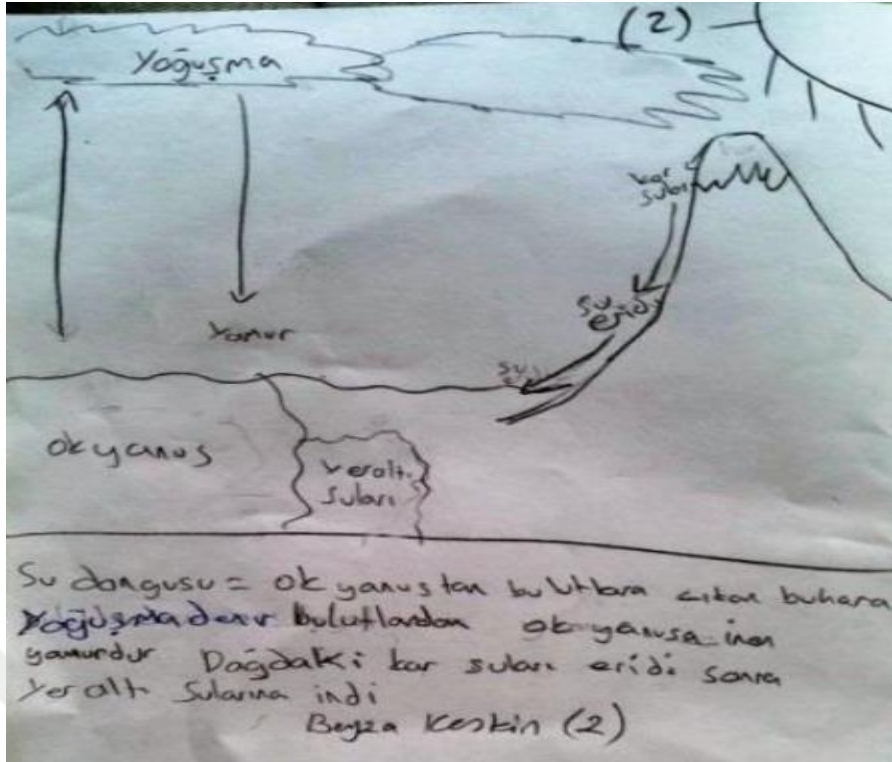 (2)
Yoğuşma
kar
suları
su
eridi
su
yamur
okyanus
Yeraltı
Suları
Su dongusu = okyanustan bulutlara çıkan buhara
Yoğuşma denir bulutlardan okyanusa inen
yamurdur Dağdaki kar suları eridi sonra
Yeraltı Sularına indi
Beyza Keskin (2)